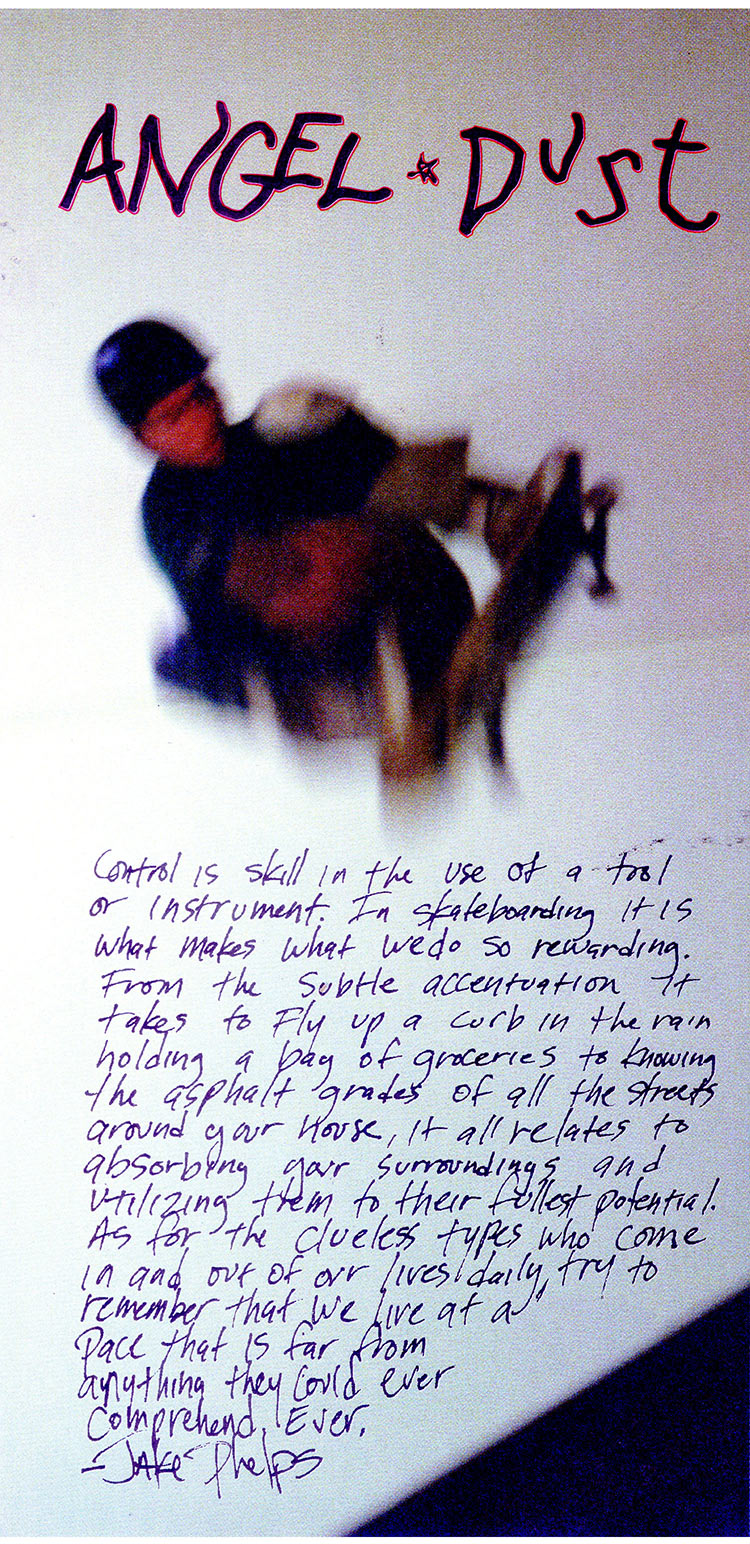 ANGEL ★ DUST
Control is skill in the use of a tool
or instrument. In skateboarding it is
what makes what we do so rewarding.
From the subtle accentuation it
takes to Fly up a curb in the rain
holding a bag of groceries to knowing
the asphalt grades of all the streets
around your House, it all relates to
absorbing your surroundings and
utilizing them to their fullest potential.
As for the clueless types who come
in and out of our lives daily, try to
remember that we live at a
pace that is far from
anything they could ever
comprehend. Ever.
-Jake Phelps